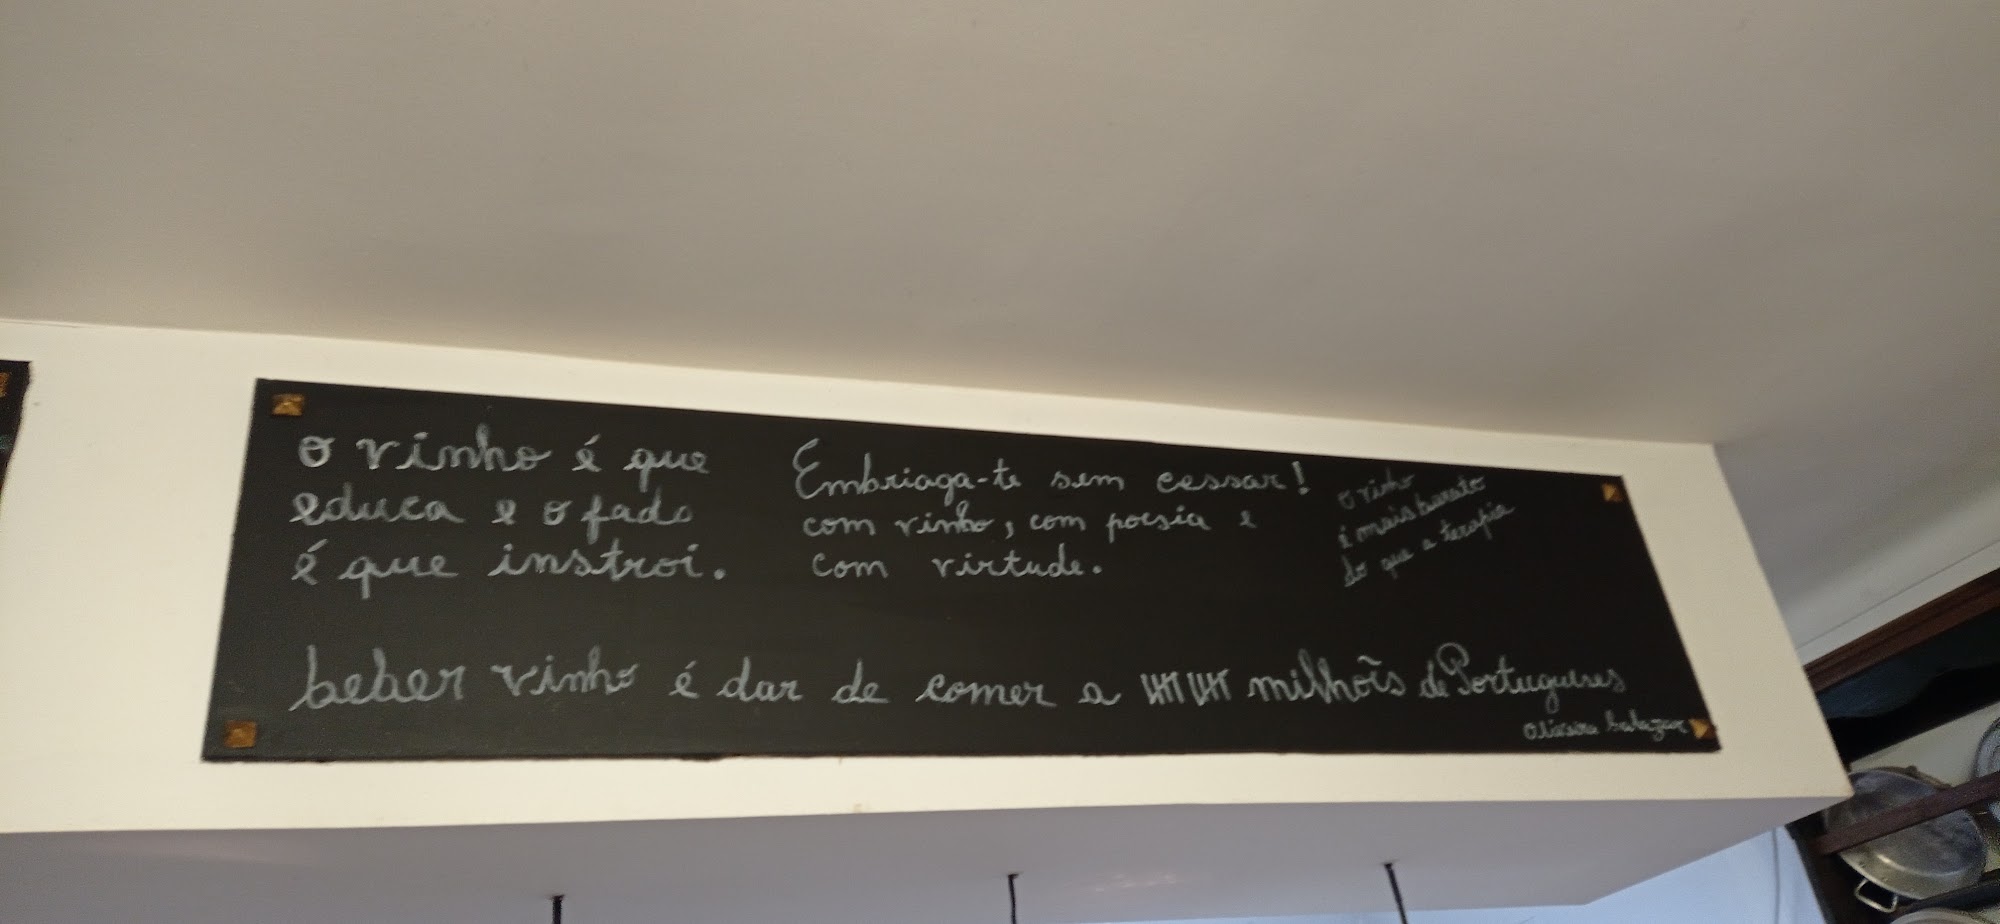 o vinho é que
educa e o fado
é que instroi.
Embriaga-te sem cessar!
com vinho, com poesia e
com virtude.
o vinho
é mais barato
do que a terapia
beber vinho é dar de comer a milhões de Portugueses
Oliveira Salazar